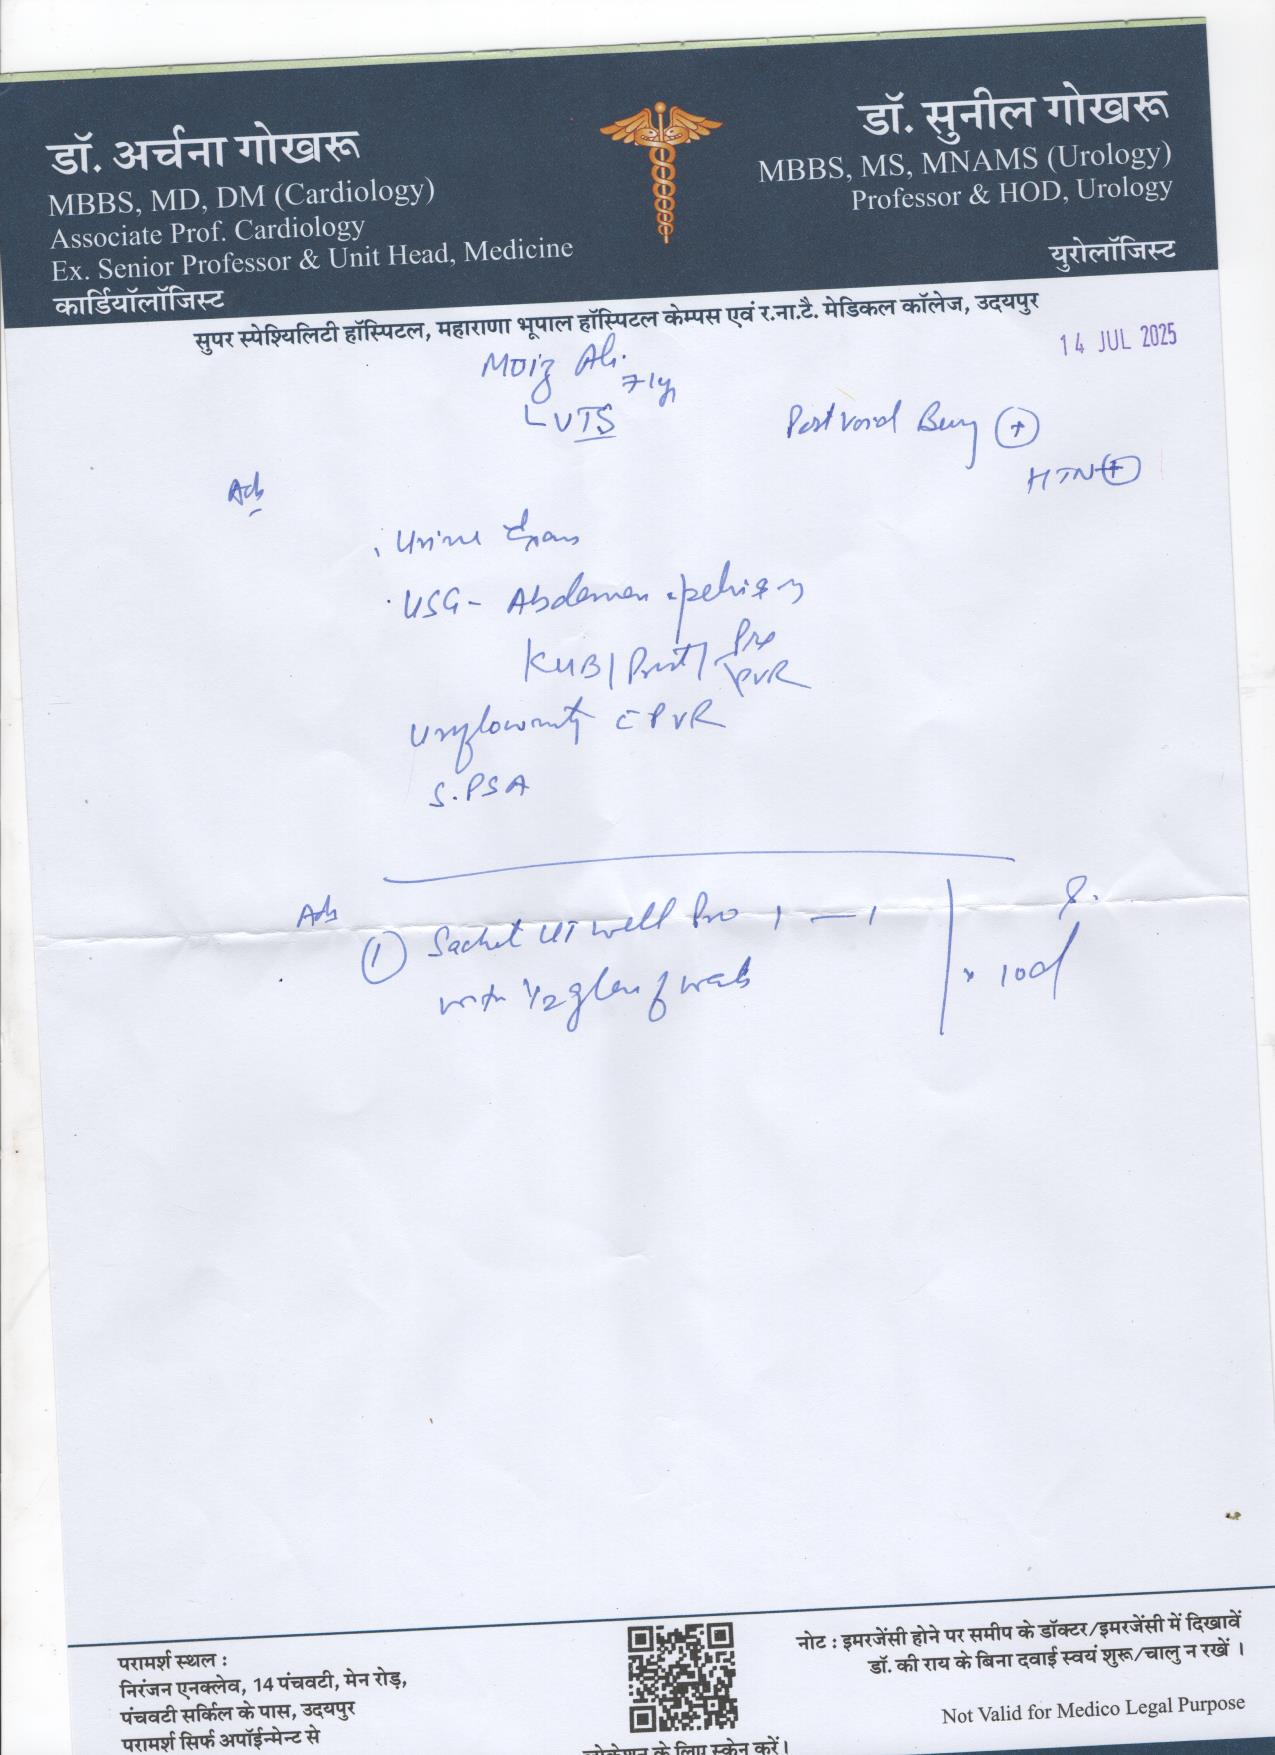 डॉ. अर्चना गोखरू
MBBS, MD, DM (Cardiology)
Associate Prof. Cardiology
Ex. Senior Professor & Unit Head, Medicine
कार्डियॉलॉजिस्ट
डॉ. सुनील गोखरू
MBBS, MS, MNAMS (Urology)
Professor & HOD, Urology
युरोलॉजिस्ट
सुपर स्पेश्यिलिटी हॉस्पिटल, महाराणा भूपाल हॉस्पिटल केम्पस एवं र.ना.टै. मेडिकल कॉलेज, उदयपुर
14 JUL 2025
Moiz Ali.
71y
LUTS
Post void
HTN +
Adv
Urine Exam
USG - Abdomen pelvis
KUB / Prost / Pre
PVR
Uroflowmetry c̄ PVR
S. PSA
Adv
1 Sachet UT well Pro 1 — 1
with 1/2 glass of water
x 10d
परामर्श स्थल :
निरंजन एनक्लेव, 14 पंचवटी, मेन रोड़,
पंचवटी सर्किल के पास, उदयपुर
परामर्श सिर्फ अपॉईन्मेन्ट से
के लिए स्केन करें।
नोट : इमरजेंसी होने पर समीप के डॉक्टर/इमरजेंसी में दिखावें
डॉ. की राय के बिना दवाई स्वयं शुरू/चालु न रखें ।
Not Valid for Medico Legal Purpose